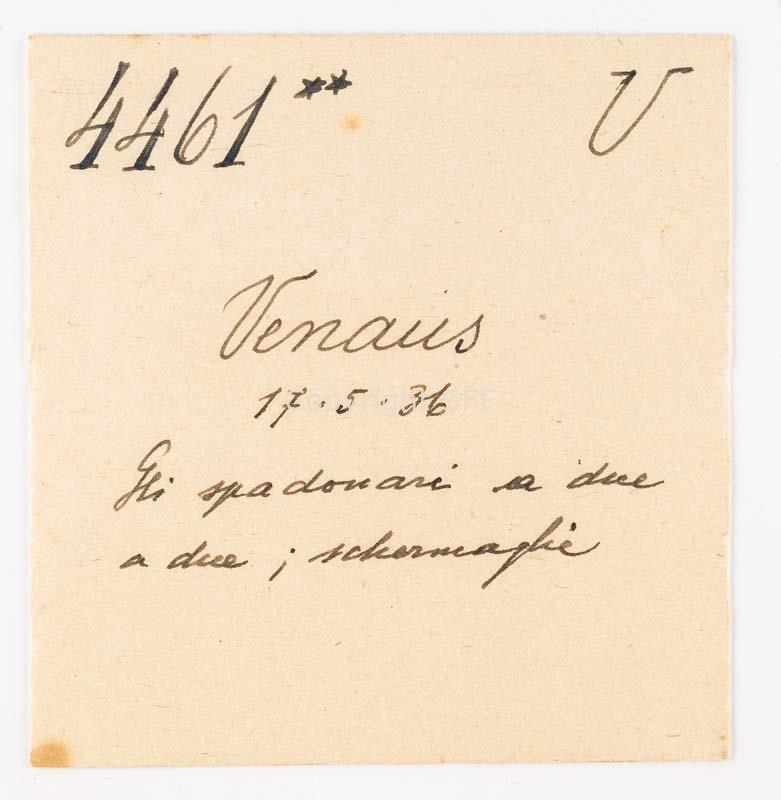 4461** V
Venaus
17.5.36
Gli spadonari a due
a due ; schermaglie